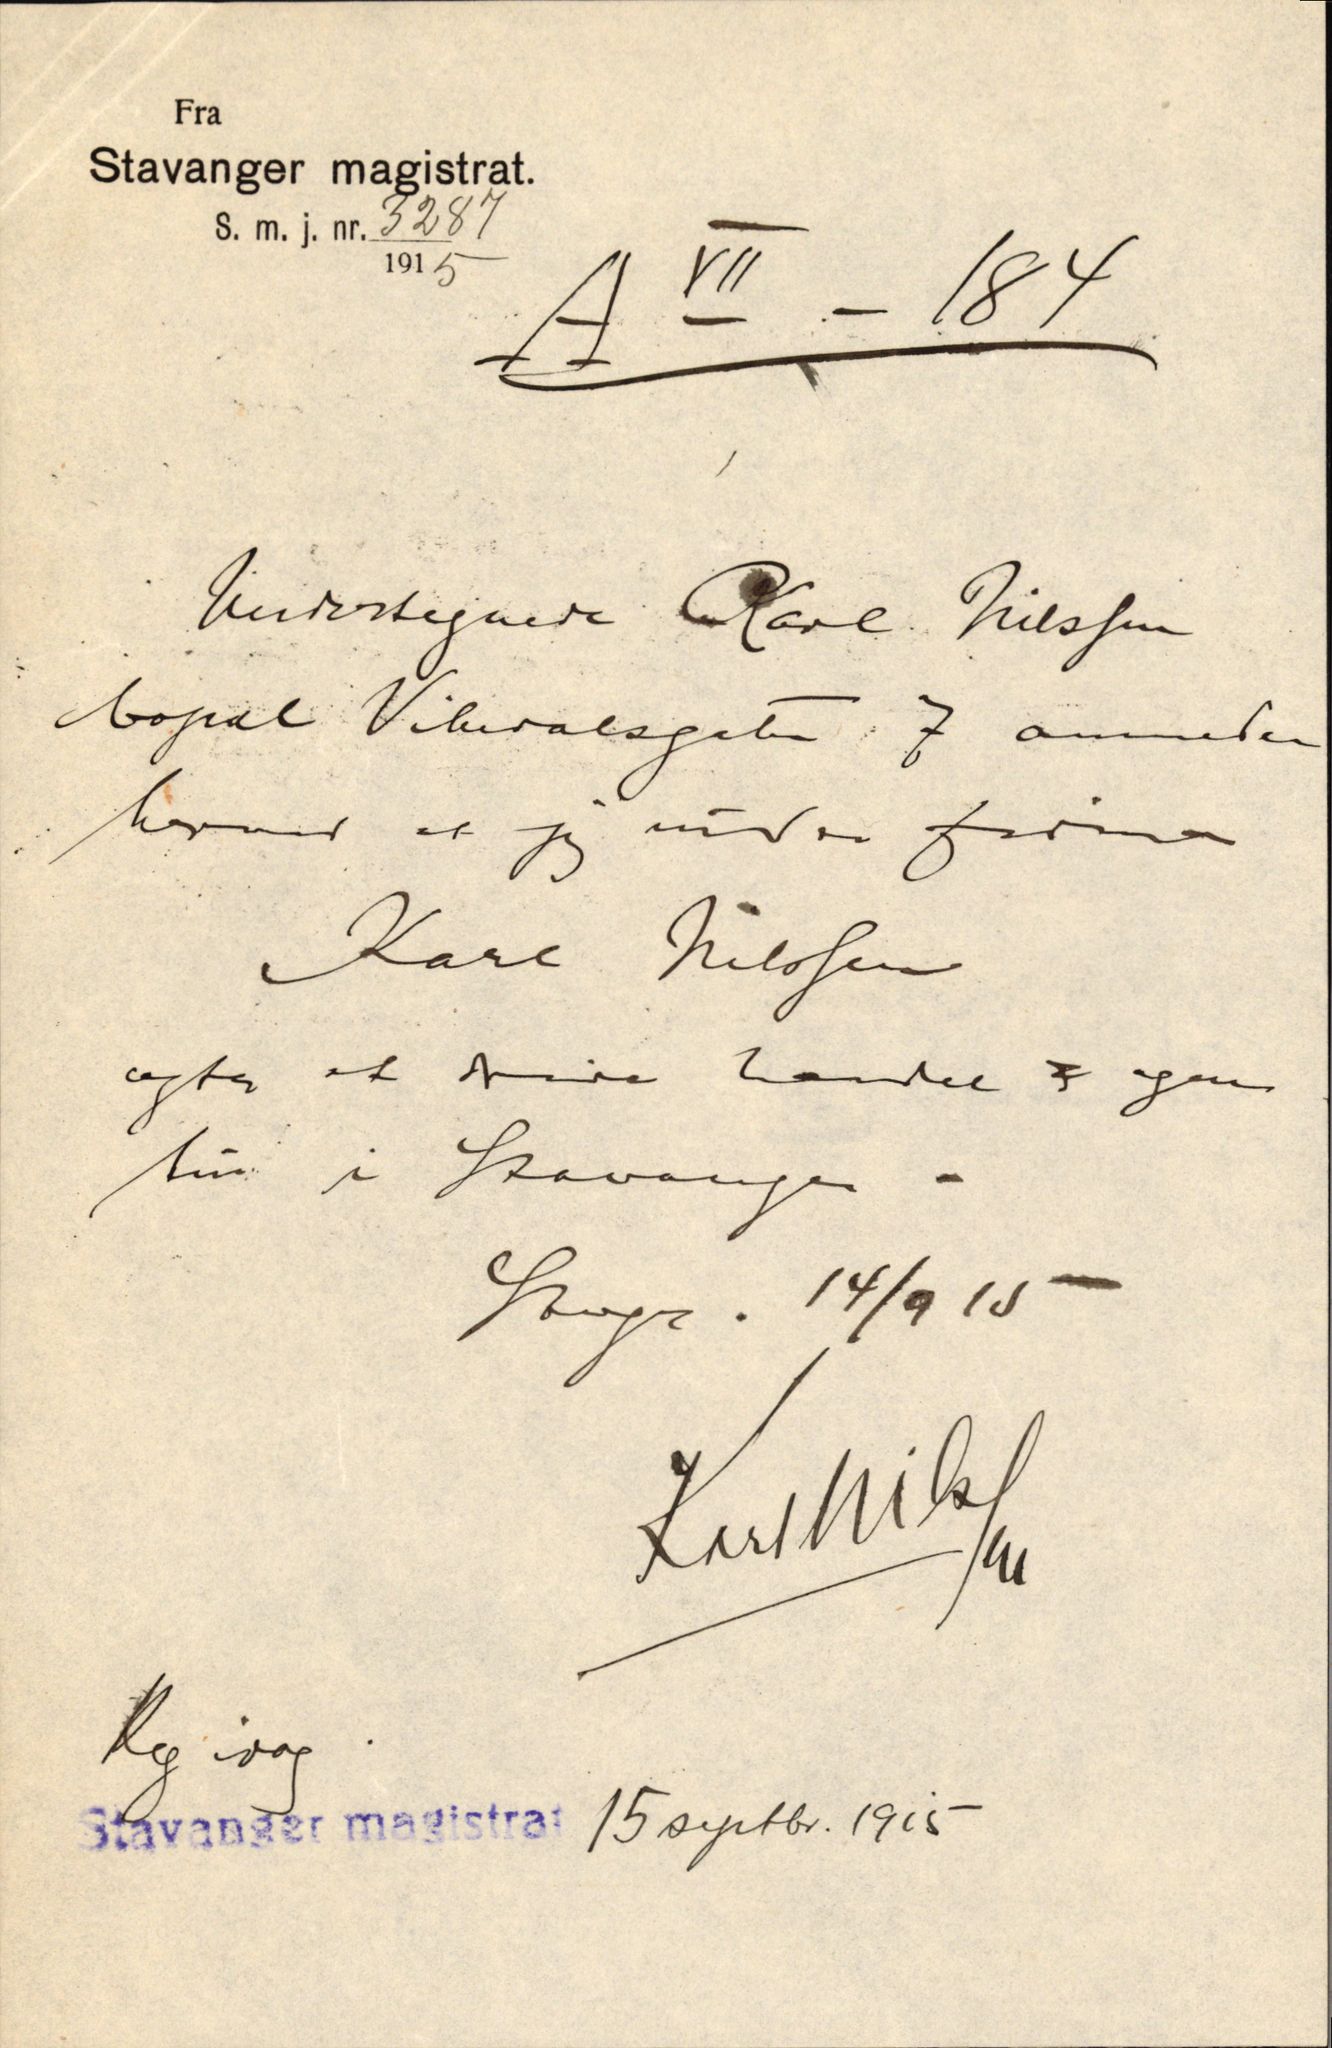 Fra
Stavanger magistrat.
S. m. j. nr. 3287
1915
A VII - 184
Undertegnede Karl Nilssen
bopæl Vikedalsgaten 7 anmelder
herved at jeg under firma
Karl Nilssen
agter at drive handel & agen
tur i Stavanger -
Stvgr. 14/9 15
Karl Nilssen
Reg idag.
Stavanger magistrat 15 septbr. 1915